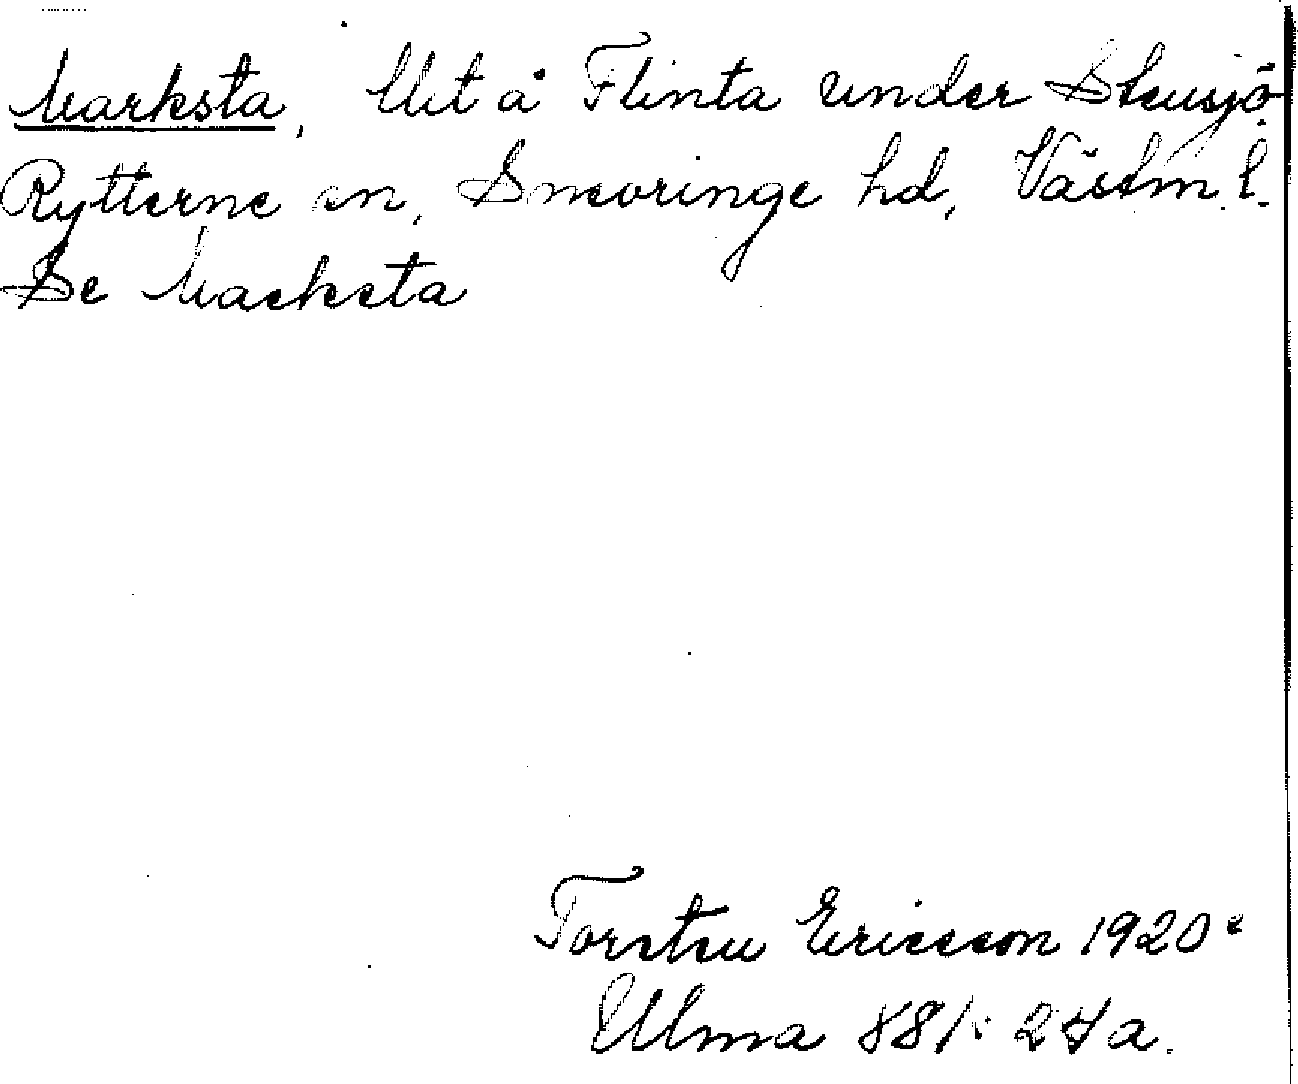 Marksta, å Flinta under Stensjö
Rytterne sn, Snevringe hd, Västm. l.
Se
Torsten Ericsson 1920
Ulma 881: 24 a.